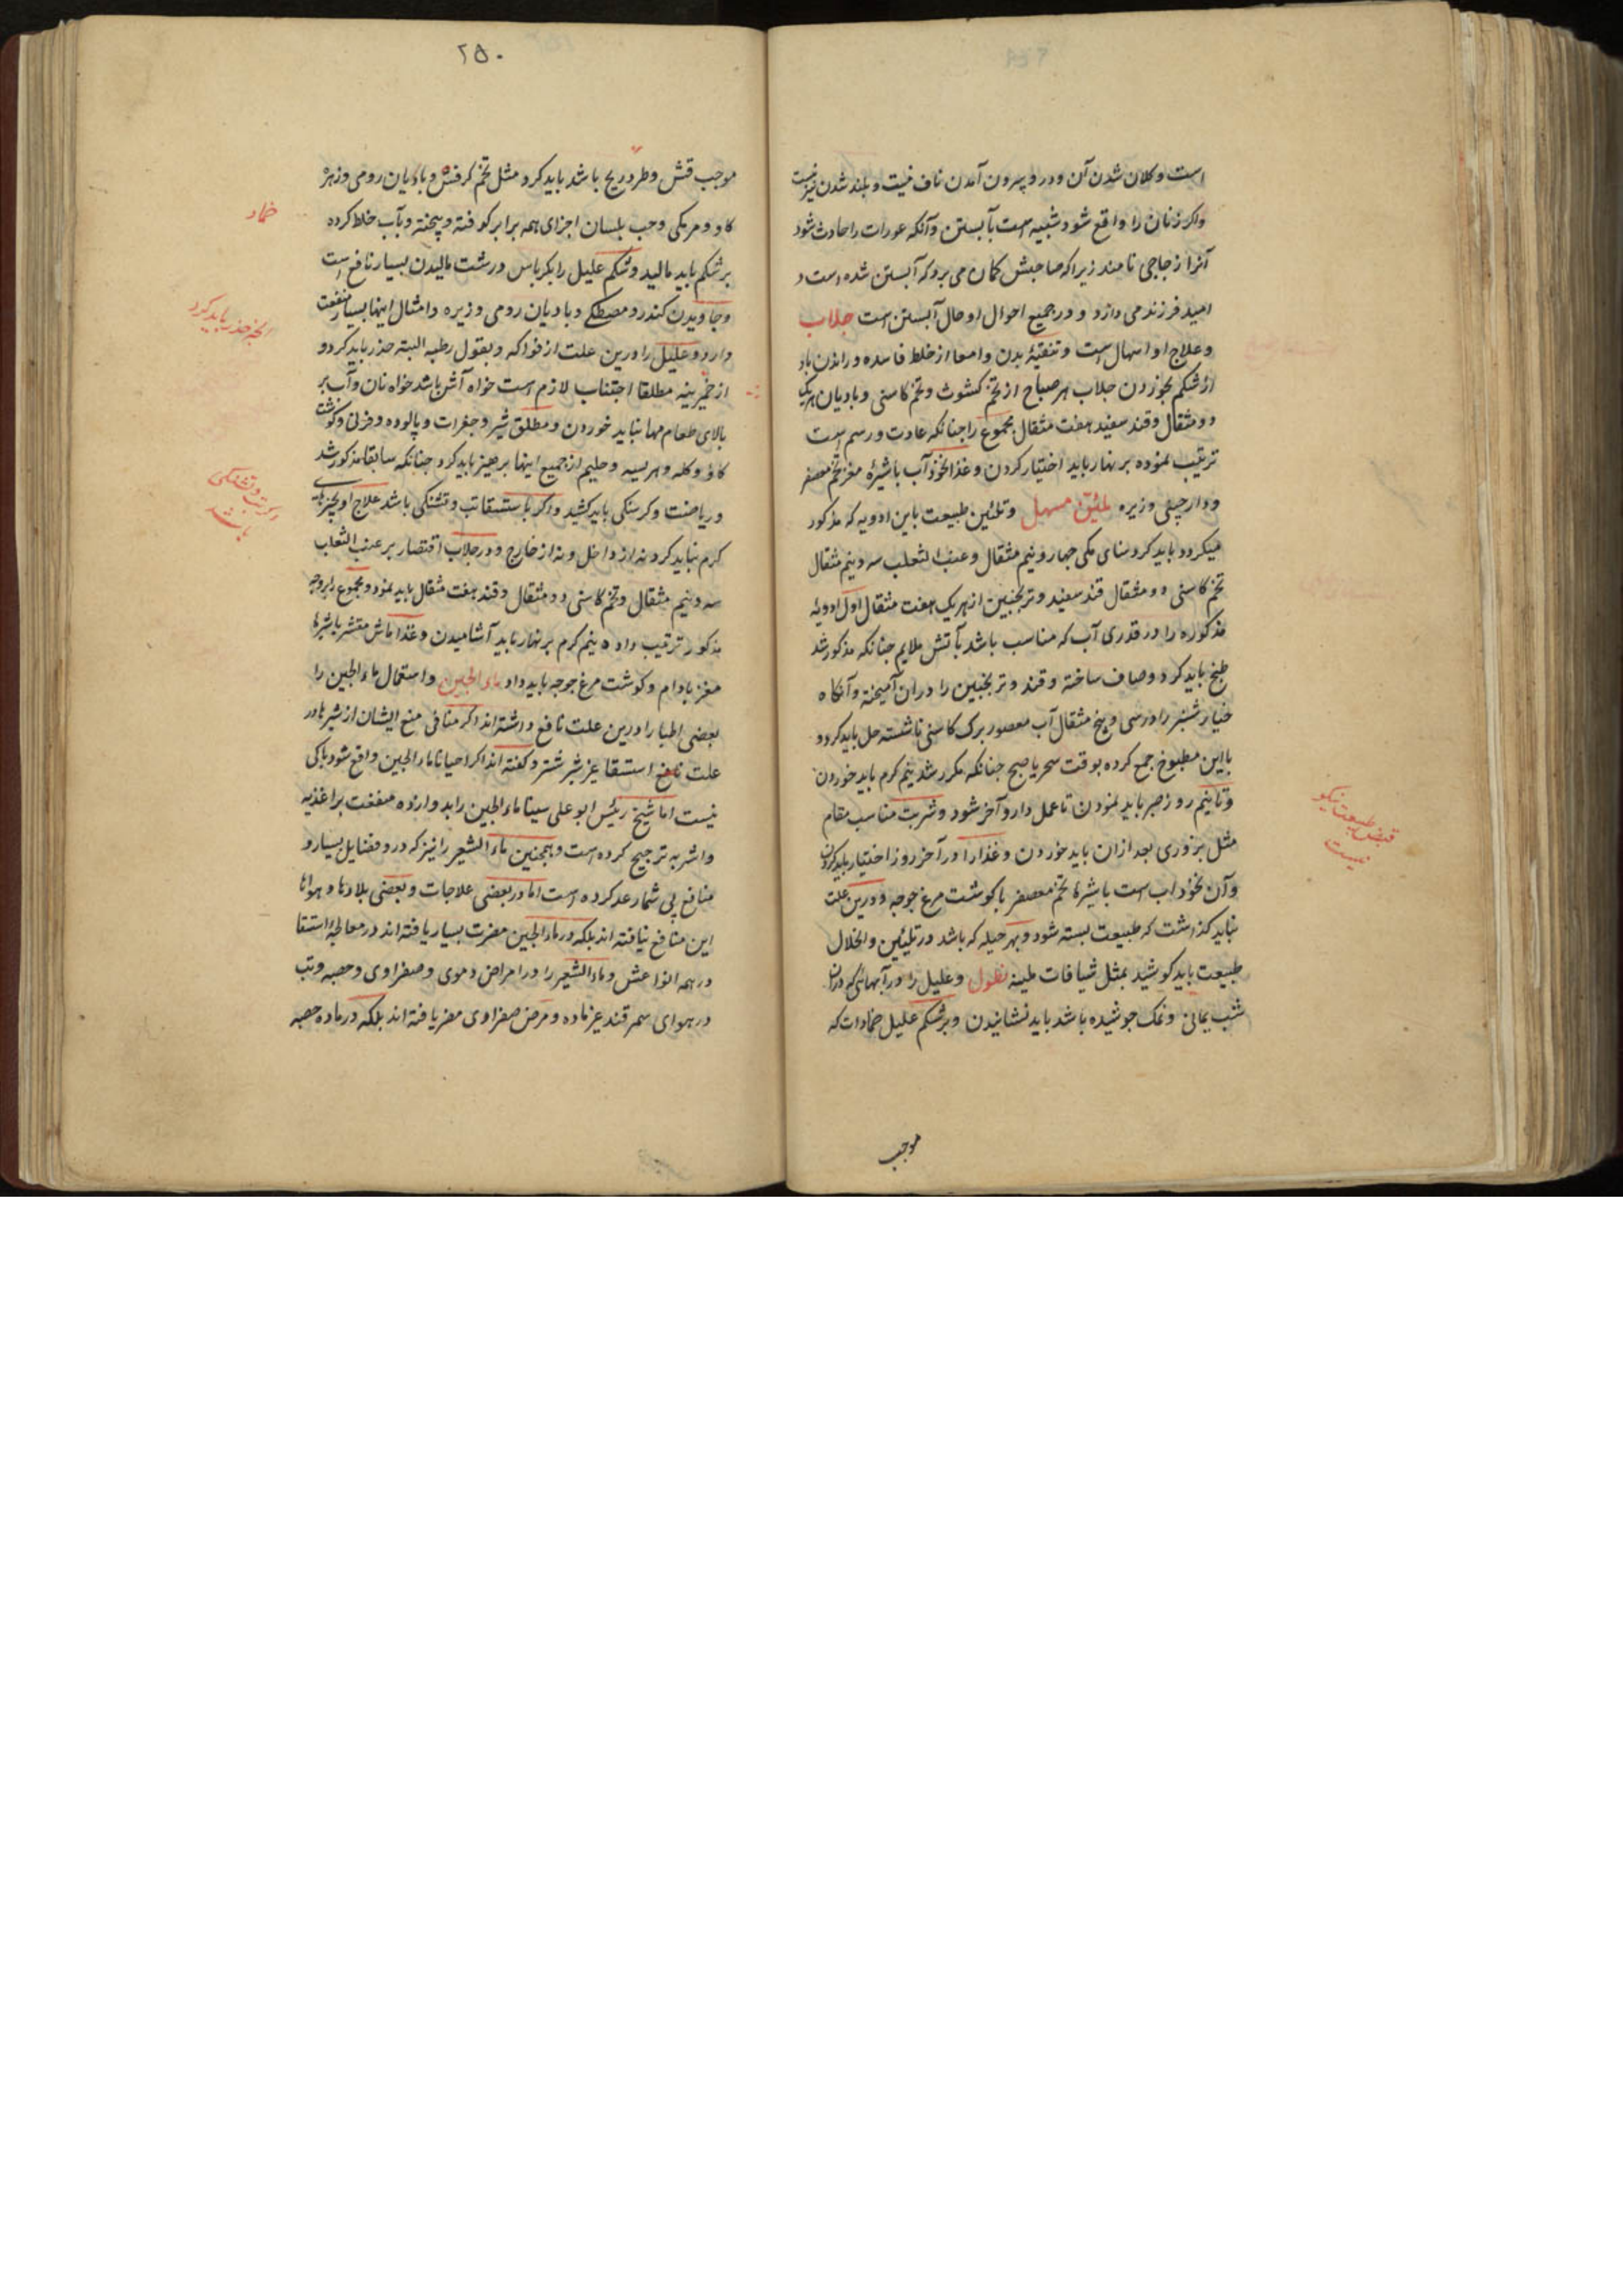 است و کلان شدن آن و درد و بیرون آمدن ناف نیست و بلند شدن نیز نیست
واکر زنان را واقع شود شبیه است بآبستن وآنکه عورات را حادث شود
آنرا زجاجی نامند زیرا که صاحبش کمان می برد که آبستن شده است و
امید فرزند می دارد و در جمیع احوال او حال آبستن است جلاب
وعلاج او اسهال است و تنقیۀ بدن وامعا از خلط فاسده و راندن باد
از شکم بخوردن جلاب هر صباح از تخم کشوث و تخم کاسنی و بادیان هریک
دو مثقال و قند سفید هفت مثقال مجموع را جنانکه عادت و رسم است
ترتیب نموده بر نهار باید اختیار کردن و غذا نخود آب با شیرۀ مغز تخم معصفر
و دارچینی و زیره مسهل و تلئین طبیعت باین ادویه که مذکور
میکردد باید کرد سنای مکی جهار ونیم مثقال و عنب الثعلب سه ونیم مثقال
تخم کاسنی دو مثقال قند سفید و ترنجبین از هریک هفت مثقال اول ادویۀ
مذکوره را در قدری آب که مناسب باشد بآتش ملایم جنانکه مذکور شد
طبخ باید کرد و صاف ساخته و قند و ترنجبین را در آن آمیخته و آنکاه
خیار شنبر را در سی و پنج مثقال آب معصور برک کاسنی ناشسته حل باید کرد و
با این مطبوخ جمع کرده بوقت سحر یا صبح جنانکه مکرر شد نیم کرم باید خوردن
و تا نیم روز صبر باید نمودن تا عمل دارو آخر شود و شربت مناسب مقام
مثل بزوری بعد ازان باید خوردن و غذا را در آخر روز اختیار باید کردن
وآن نخود آب است با شیرۀ تخم معصفر با کوشت مرغ جوجه و درین علت
نباید کذاشت که طبیعت بسته شود و بهر حیله که باشد در تلیین و انحلال
طبیعت باید کوشید بمثل شیافات لینه نطول و علیل را در آبهائی که دران
شب یمانی و نمک جوشیده باشد باید نشانیدن و بر شکم علیل ضمادات که
موجب
قبض طبیعت نیکو
نیست
۲۵۰
موجب فش و طرد ریح باشد باید کرد مثل تخم کرفس و بادیان رومی و زهرۀ
کاو و مر مکی و حب بلسان اجزای همه برابر کوفته و پیخته و بآب خلط کرده
بر شکم باید مالید و شکم علیل را بکرباس درشت مالیدن بسیار نافع است
و جاویدن کندر و مصطکی و بادیان رومی و زیره و امثال اینها بسیار منفعت
دارد و علیل را درین علت از فواکه و بقول رطبه البته حذر باید کرد و
از خمیرینه مطلقا اجتناب لازم است خواه آش باشد خواه نان و آب بر
بالای طعام مها نباید خوردن و مطلق شیر و جغرات و پالوده و فرنی و کوشت
کاو و کله و هریسه و حلیم از جمیع اینها برهیز باید کرد جنانکه سابقا مذکور شد
و ریاضت و کرسنکی باید کشید و اکر با استسقا تب و تشنکی باشد علاج او بچیزهای
کرم نباید کرد نه از داخل و نه از خارج و در جلاب اقتصار بر عنب الثعلب
سه ونیم مثقال و تخم کاسنی دو مثقال و قند هفت مثقال باید نمود و مجموع را بوجه
مذکور ترتیب داده نیم کرم بر نهار باید آشامیدن و غذا ماش مقشر با شیرۀ
مغز بادام و کوشت مرغ جوجه باید داد ماء الجبن و استعمال ماء الجبن را
بعضی اطبا را درین علت نافع داشته اند اکر منافی منع ایشان از شیرها در
علت استسقا غیر شیر شتر و کفته اند اکر احیانا ماء الجبن واقع شود باکی
نیست اما شیخ رئیس ابو علی سینا ماء الجبن را بدوازده منفعت بر اغذیه
و اشربه ترجیح کرده است و همجنین ماء الشعیر را نیز که درو فضایل بسیار و
منافع بی شمار عد کرده است اما در بعضی علاجات و بعضی بلادها و هواها
این منافع نیافته اند بلکه در ماء الجبن مضرت بسیار یافته اند در معالجۀ استسقا
در همه انواعش و ماء الشعیر را در امراض دموی و صفراوی و حصبه و تب
در هوای سمرقند غیر ماده و مرض صفراوی مضر یافته اند بلکه در ماده حصبه
ضماد
باید کرد
تب و تشنکی
باشد